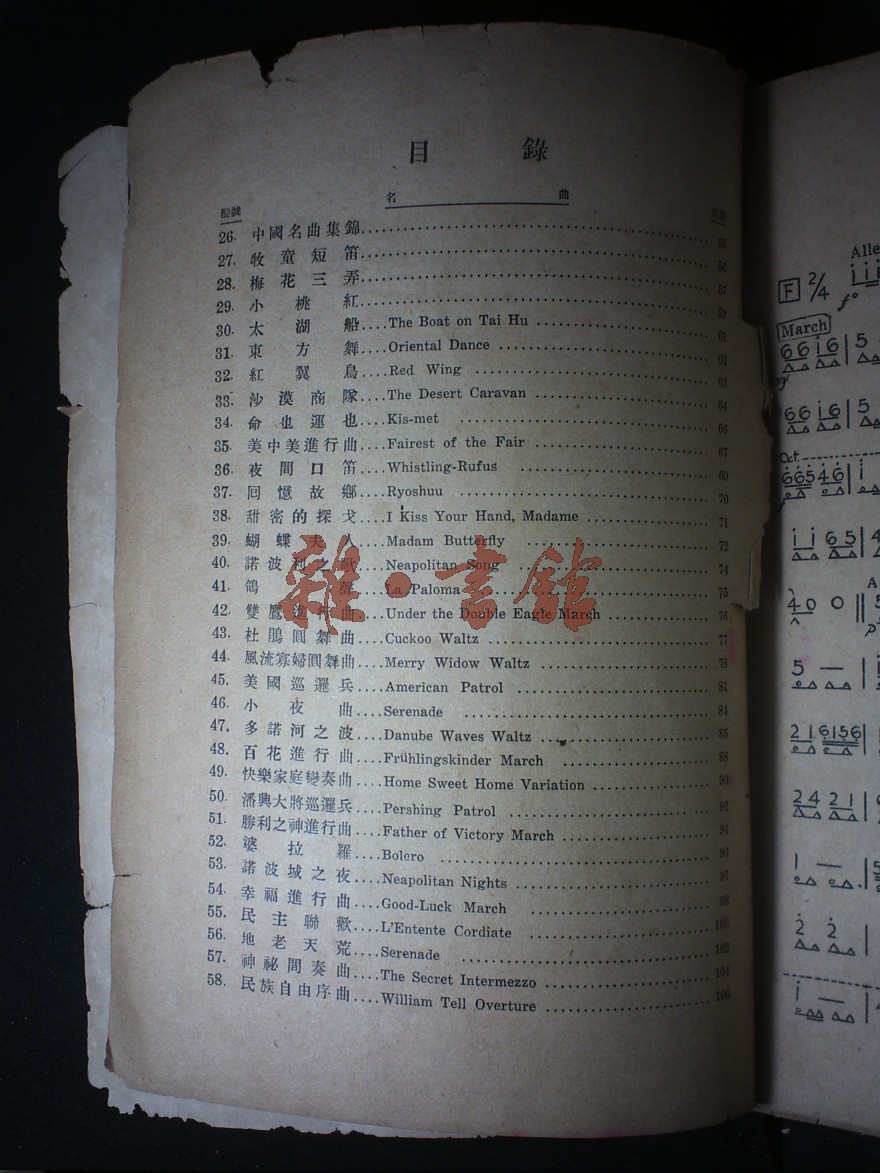 目 錄
順號 名 曲 頁數
26. 中國名曲集錦 55
27. 牧童短笛 56
28. 梅花三弄 57
29. 小桃紅 59
30. 太湖船....The Boat on Tai Hu 61
31. 東方舞....Oriental Dance 62
32. 紅翼鳥....Red Wing 63
33. 沙漠商隊....The Desert Caravan 64
34. 命也運也....Kis-met 66
35. 美中美進行曲....Fairest of the Fair 67
36. 夜間口笛....Whistling-Rufus 69
37. 囘憶故鄉....Ryoshuu 70
38. 甜密的探戈....I Kiss Your Hand, Madame 71
39. 蝴蝶夫人....Madam Butterfly 72
40. 諾波利之歌....Neapolitan Song 74
41. 鴿聲....La Paloma 75
42. 雙鷹進行曲....Under the Double Eagle March 76
43. 杜鵑圓舞曲....Cuckoo Waltz 77
44. 風流寡婦圓舞曲....Merry Widow Waltz 78
45. 美國巡邏兵....American Patrol 81
46. 小夜曲....Serenade 84
47. 多諾河之波....Danube Waves Waltz 85
48. 百花進行曲....Frühlingskinder March 88
49. 快樂家庭變奏曲....Home Sweet Home Variation 90
50. 潘興大將巡邏兵....Pershing Patrol 92
51. 勝利之神進行曲....Father of Victory March 94
52. 婆拉羅....Bolero 96
53. 諾波城之夜....Neapolitan Nights 97
54. 幸福進行曲....Good-Luck March 98
55. 民主聯歡....L'Entente Cordiate 100
56. 地老天荒....Serenade 102
57. 神祕間奏曲....The Secret Intermezzo 104
58. 民族自由序曲....William Tell Overture 106
雜·書館
Alle
F 2/4 i i i
f°
March
6 6 i 6 | 5
6 6 i 6 | 5
Oct.
6 6 5 4 6 | i
i i 6 5 | 4
A
4 0 0 ‖ 5
5 —
2 1 6 1 5 6
2 4 2 1 | 6
1 — | 5
2 2
i — | 4